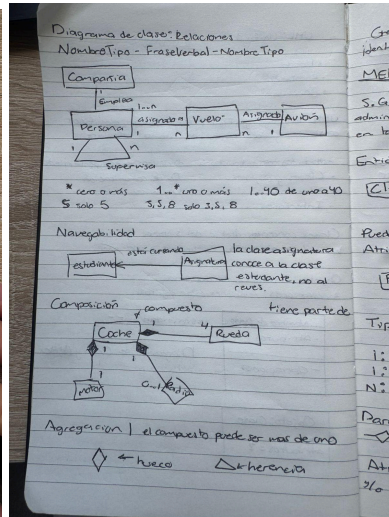 Diagrama de clase: Relaciones
NombreTipo - FraseVerbal - Nombre Tipo
Compañia
1
Emplea
1..n
Persona
asignado a
Vuelo
Asignado
Avión
1
n
n
1
n
Supervisa
* cero o más 1..* uno o más 1..40 de uno a 40
5 solo 5 3,5,8 solo 3,5,8
Navegabilidad
está cursando
estudiante
Asignatura
la clase asignatura
conoce a la clase
estudiante, no al
reves.
Composición
compuesto
tiene parte de
Coche
1
4
Rueda
1
1
1
Motor
0..1
Radio
Agregación | el compuesto puede ser mas de uno
hueco
herencia
ident
S. G
admin
en
Pued
Atri
Tip
1:
1:
N: